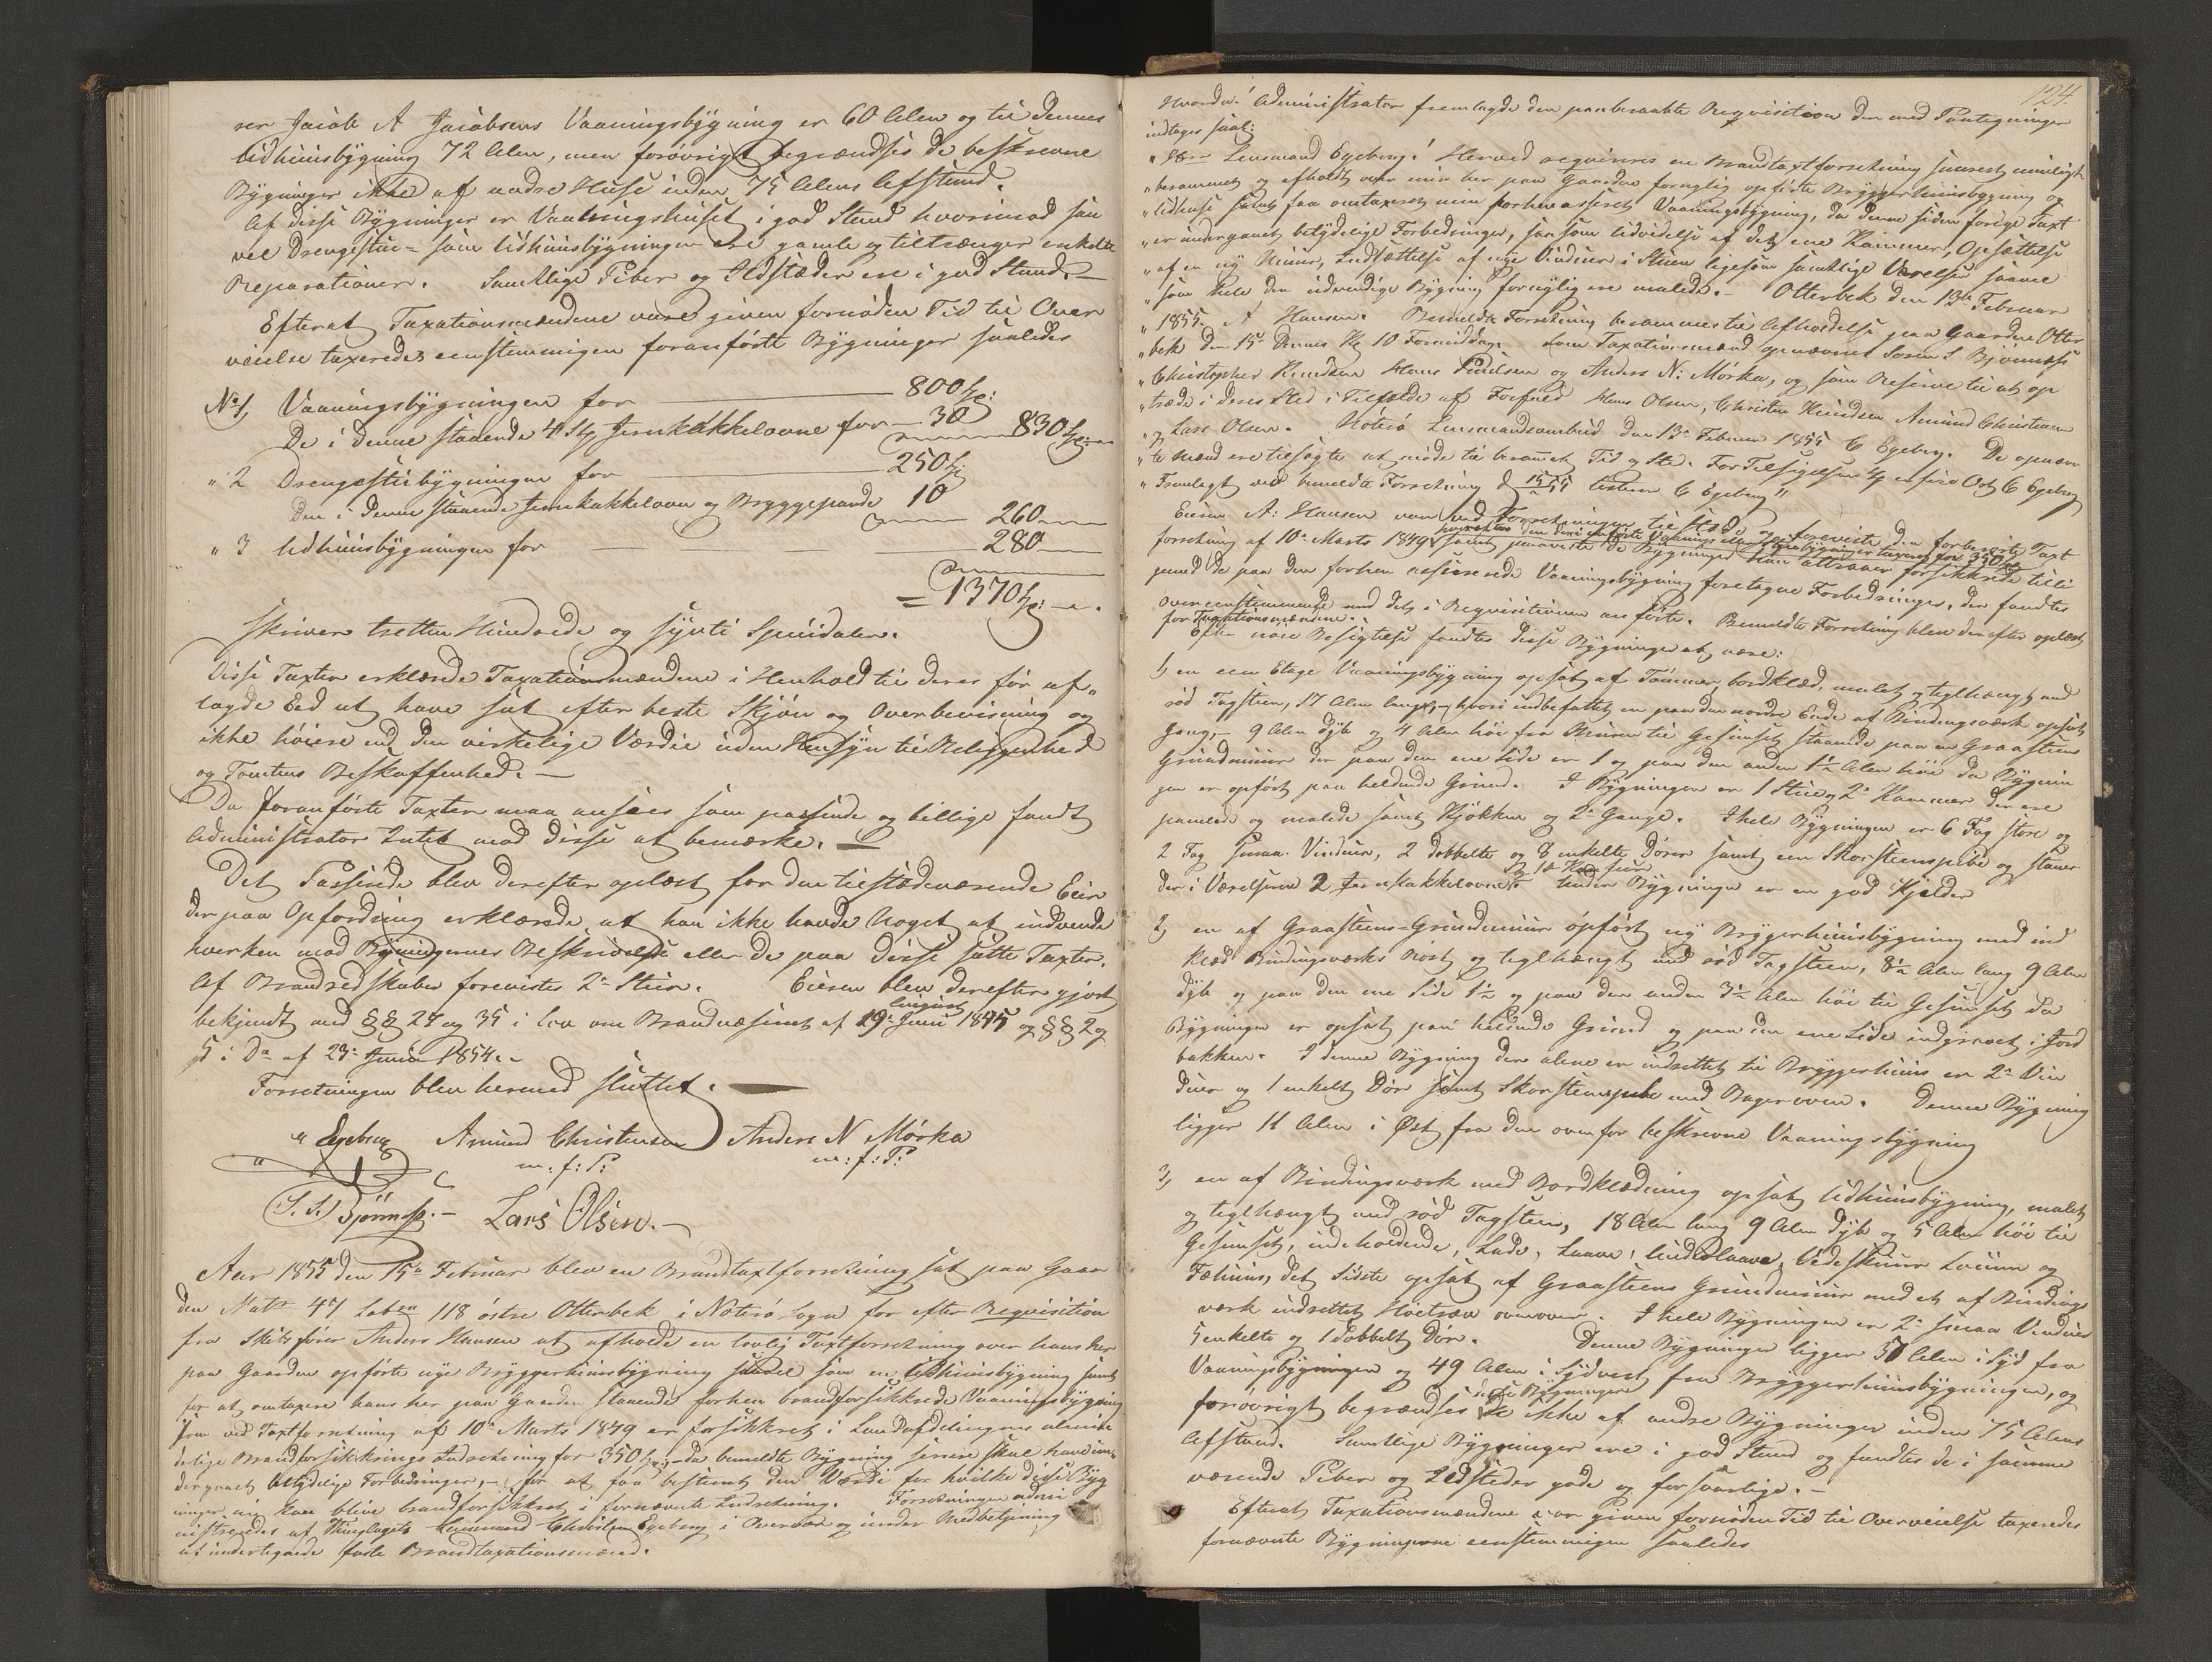 rer Jacob A Jacobsens Vaaningsbygning er 60 Alen og til dennes
Udhuusbygning 72 Alen, men forøvrigt begrændses de beskrevne
Bygninger ikke af andre Huse inden 75 Alens Afstand.
Af disse Bygninger er Vaaningshuset i god Stand hvorimod saa
vel Drengestue- som Udhuusbygningen ere gamle og tiltrænger enkelte
Reparationer. Samtlige Piber og Ildstæder ere i god Stand.—
Efterat Taxationsmændene vare given fornøden Tid til Over
veielse taxeredes eenstemmigen foranførte Bygninger saaledes
No 1, Vaaningsbygningen for 800
De i denne staaende 4 Stk Jernkakkelovne for — 30 830
" 2 Drengestubygningen for 250
Den i denne staaende Jernkakkelovn og Bryggepande 10
260
" 3 Udhuusbygningen for 280
= 1370
skriver tretten Hundrede og syvti Speciedaler.
Disse Taxter erklærede Taxationsmændene i Henhold til deres før af„
lagde Eed at have sat efter beste Skjøn og Overbeviisning og
ikke høiere end den virkelige Værdie uden Hensyn til Beliggenhed
og Tomtens Beskaffenhed.—
Da foranførte Taxter maa ansees som passende og billige fandt
Administrator Intet mod disse at bemærke.
Det Passerede blev derefter oplæst for den tilstædeværende Eier
der paa Opfordring erklærede at han ikke havde Noget at indvende
hverken mod Bygningernes Beskrivelse eller de paa disse satte Taxter.
Af Brandredskaber forevistes 2de Stiger. Eieren blev derefter gjort
August
bekjendt med §§ 27 og 35 i Lov om Brandvæsenet af 19de Juni 1845 og §§ 2 og
5 i Do af 23de Juni 1854.-
Forretningen blev hermed sluttet.
Egeberg Amund Christensen Anders N Mørka
m: f: P: m: f: P:
S. S. Bjørnes.- Lars Olsen.-
Aar 1855 den 15de Februar blev en Brandtaxtforretning sat paa Gaar
den Matr 47 Løben 118 østre Otterbek i Nøterø Sogn for efter Requisition
fra Skibsfører Anders Hansen at afholde en lovlig Taxtforretning over hans her
paa Gaarden opførte nye Bryggerhuusbygning saavel som en Udhuusbygning samt
for at omtaxere hans her paa Gaarden staaende forhen brandforsikkrede Vaaningsbygning
som ved Taxtforretning af 10de Marts 1849 er forsikkret i Landafdelingens almin
delige Brandforsikkrings Indretning for 350 – da bemeldte Bygning senere skal have un„
dergaaet betydelige Forbedringer,- for at faa bestemt den Værdi for hvilke disse Byg
ninger nu kan blive brandforsikkret i fornævnte Indretning. Forretningen admi
nistreredes af Thinglagets Lensmand Christian Egeberg i Overvær og under Medbetjening
af undertegnede faste Brandtaxationsmænd.
124.
Hvorda! Administrator fremlagde den paaberaabte Reqvisition der med Paategninger
indtages saal:
" Herr Lensmand Egeberg! Herved reqvireres en Brandtaxtforretning snarest muligt
" berammet og afholdt over min her paa Gaarden fornylig opførte Bryggerhuusbygning og
" Udhuse samt faa omtaxeret min forhen asseret Vaaningsbygning, da denne siden forrige Taxt
" er undergaaet betydelige Forbedringer, saasom Udvidelse af det ene Kammer, Opsættelse
" af en ny Muur, Indsættelse af nye Vinduer i Stuen ligesom samtlige Værelser saavel
" som hele den udvendige Bygning fornylig ere malede.- Otterbek den 13de Februar
" 1855. A Hansen. Bemeldte Forretning berammes til Afholdelse paa Gaarden Otter
" bek den 15de dennes Kl 10 Formiddag. Som Taxationsmænd opnævnes Søren S Bjørnes
" Christopher Knudsen Hans Paulsen og Anders N: Mørka, og som Reserve til at op
" træde i deres Sted i Tilfælde af Forfald Hans Olsen, Christen Knudsen Amund Christensen
" og Lars Olsen. Nøterø Lensmandsombud den 13de Februar 1855 C Egeberg. De opnævn
" te Mænd ere tilsagte at møde til berammet Tid og Sted. For Tilsigelsen 4 en fiir Ort C Egeberg
" Fremlagt ved bemeldte Forretning d 15/2 55 C Egeberg "
Eieren A: Hansen var ved Forretningen tilstæde og foreviste den forberørte Taxt
forretning af 10de Marts 1849 samt paaviste de Bygninger han attraaer forsikkrede tilli
gemed de paa den forhen asserede Vaaningsbygning foretagne Forbedringer, der fandtes
overeenstemmende med det i Reqvisitionen anførte. Bemeldte Forretning blev derefter oplæst
for Taxationsmændene.
Efter nøie Besigtelse fandtes disse Bygninger at være:
1) en een Etage Vaaningsbygning opsat af Tømmer, bordklæd, malet og teglhængt med
rød Tagsteen, 17 Alen lang, – hvori indbefattet en paa den nordre Ende af Bindingsværk opsat
Gang,- 9 Alen dyb og 4 Alen høi fra Muren til Gesimset staaende paa en Graasteens
Grundmuur der paa den ene Side er 1 og paa den anden 1½ Alen høi da Bygnin
gen er opført paa heldende Grund. I Bygningen er 1 Stue og 2de Kammer der ere
panelede og malede samt Kjøkken og 2de Gange. I hele Bygningen er 6 Fag store og
2 Fag smaa Vinduer, 2 dobbelte og 8 enkelte Døre samt een Skorsteenspibe og staaer
der i Værelserne 2 Jernkakkelovne. Under Bygningen er en god Kjelder
2) en af Graasteens-Grundmuur opført ny Bryggerhuusbygning med ind
klæd Bindingsværks Røst og teglhængt med rød Tagsteen, 8½ Alen lang 9 Alen
dyb og paa den ene Side 1½ og paa den anden 3½ Alen høi til Gesimset da
Bygningen er opsat paa heldende Grund og paa den ene Side indgravet i Jord
bakken. I denne Bygning der alene er indrettet til Bryggerhuus er 2de Vin
duer og 1 enkelt Dør samt Skorsteenspibe med Bagerovn. Denne Bygning
ligger 11 Alen i Øst fra den ovenfor beskrevne Vaaningsbygning
3) en af Bindingsværk med Bordklædning opsat Udhuusbygning, malet
og teglhængt med rød Tagsteen, 18 Alen lang 9 Alen dyb og 5 Alen høi til
Gesimset, indeholdende, Lade, Laave, Underlaave, Vedeskuur Loeum og
Fæhuus, det Sidste opsat af Graasteens Grundmuur med et af Bindings
værk indrettet Høetræv ovenover. I hele Bygningen er 2de smaa Vinduer
5 enkelte og 1 dobbelt Dør. Denne Bygningen ligger 50 Alen i Syd fra
Vaaningsbygningen og 49 Alen i Sydvest fra Bryggerhuusbygningen, og
disse Bygninger
forøvrigt begrændses de ikke af andre Bygninger inden 75 Alens
Afstand. Samtlige Bygninger ere i god Stand og fandtes de i samme
værende Piber og Ildsteder gode og forsvarlige.-
Efterat Taxationsmændene var given fornøden Tid til Overveielse taxeredes
fornævnte Bygningerne eenstemmigen saaledes